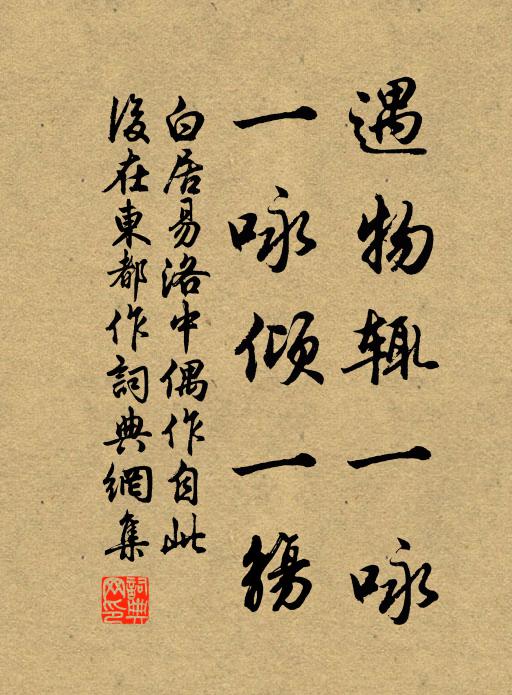 遇物辄一咏
一咏倾一觞
白居易洛中偶作自此
後在東都作詞典網集
詞典网印